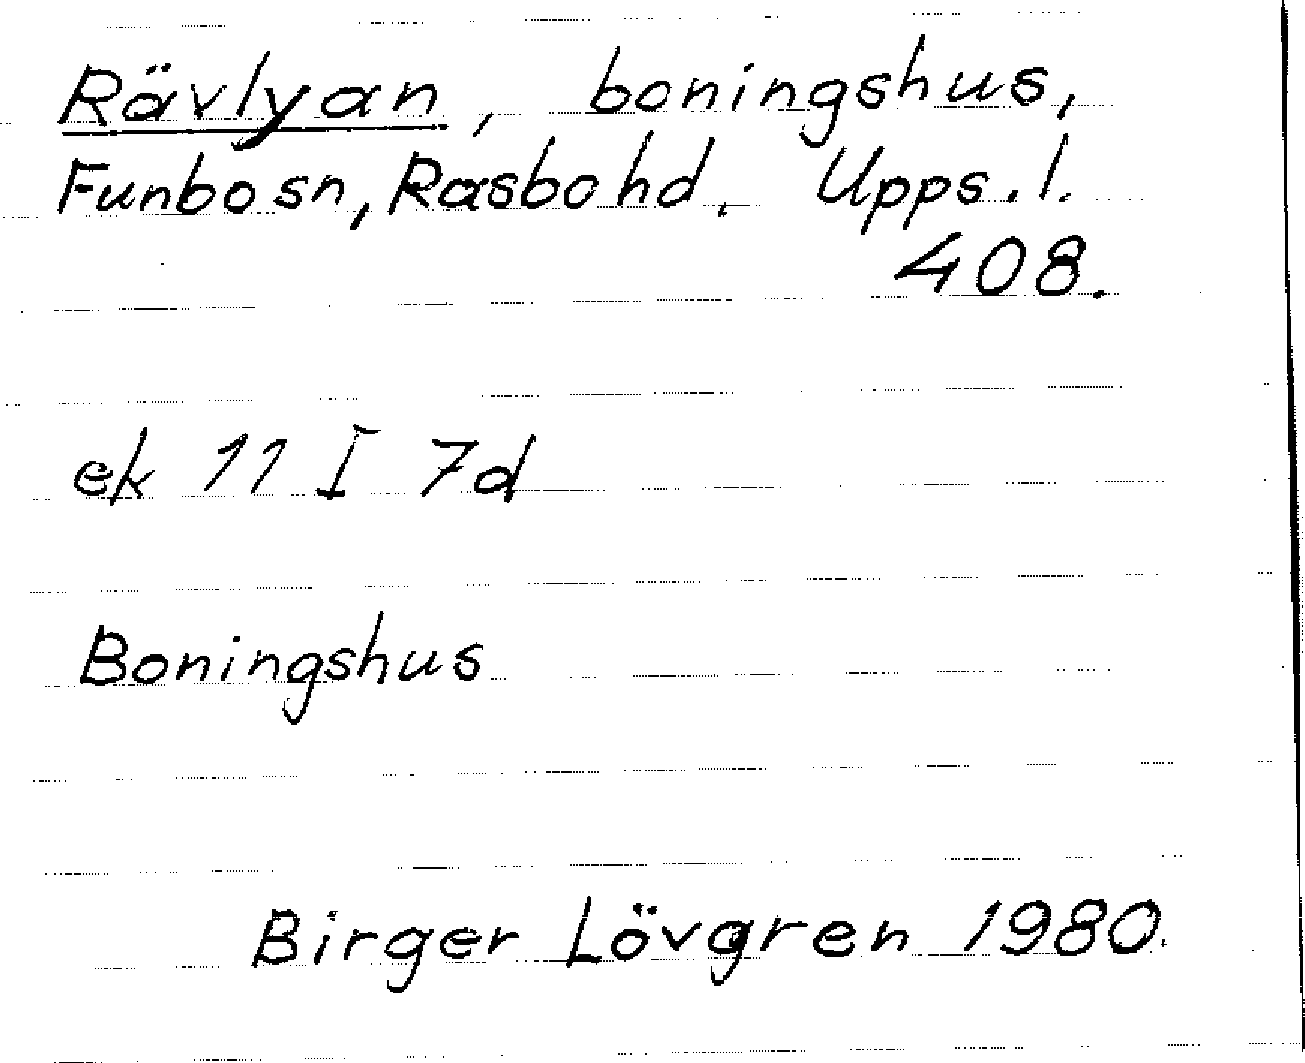 Rävlyan, boningshus,
Funbo sn, Rasbo hd, Upps. l.
408.
ek 11 I 7d
Boningshus
Birger Lövgren 1980.